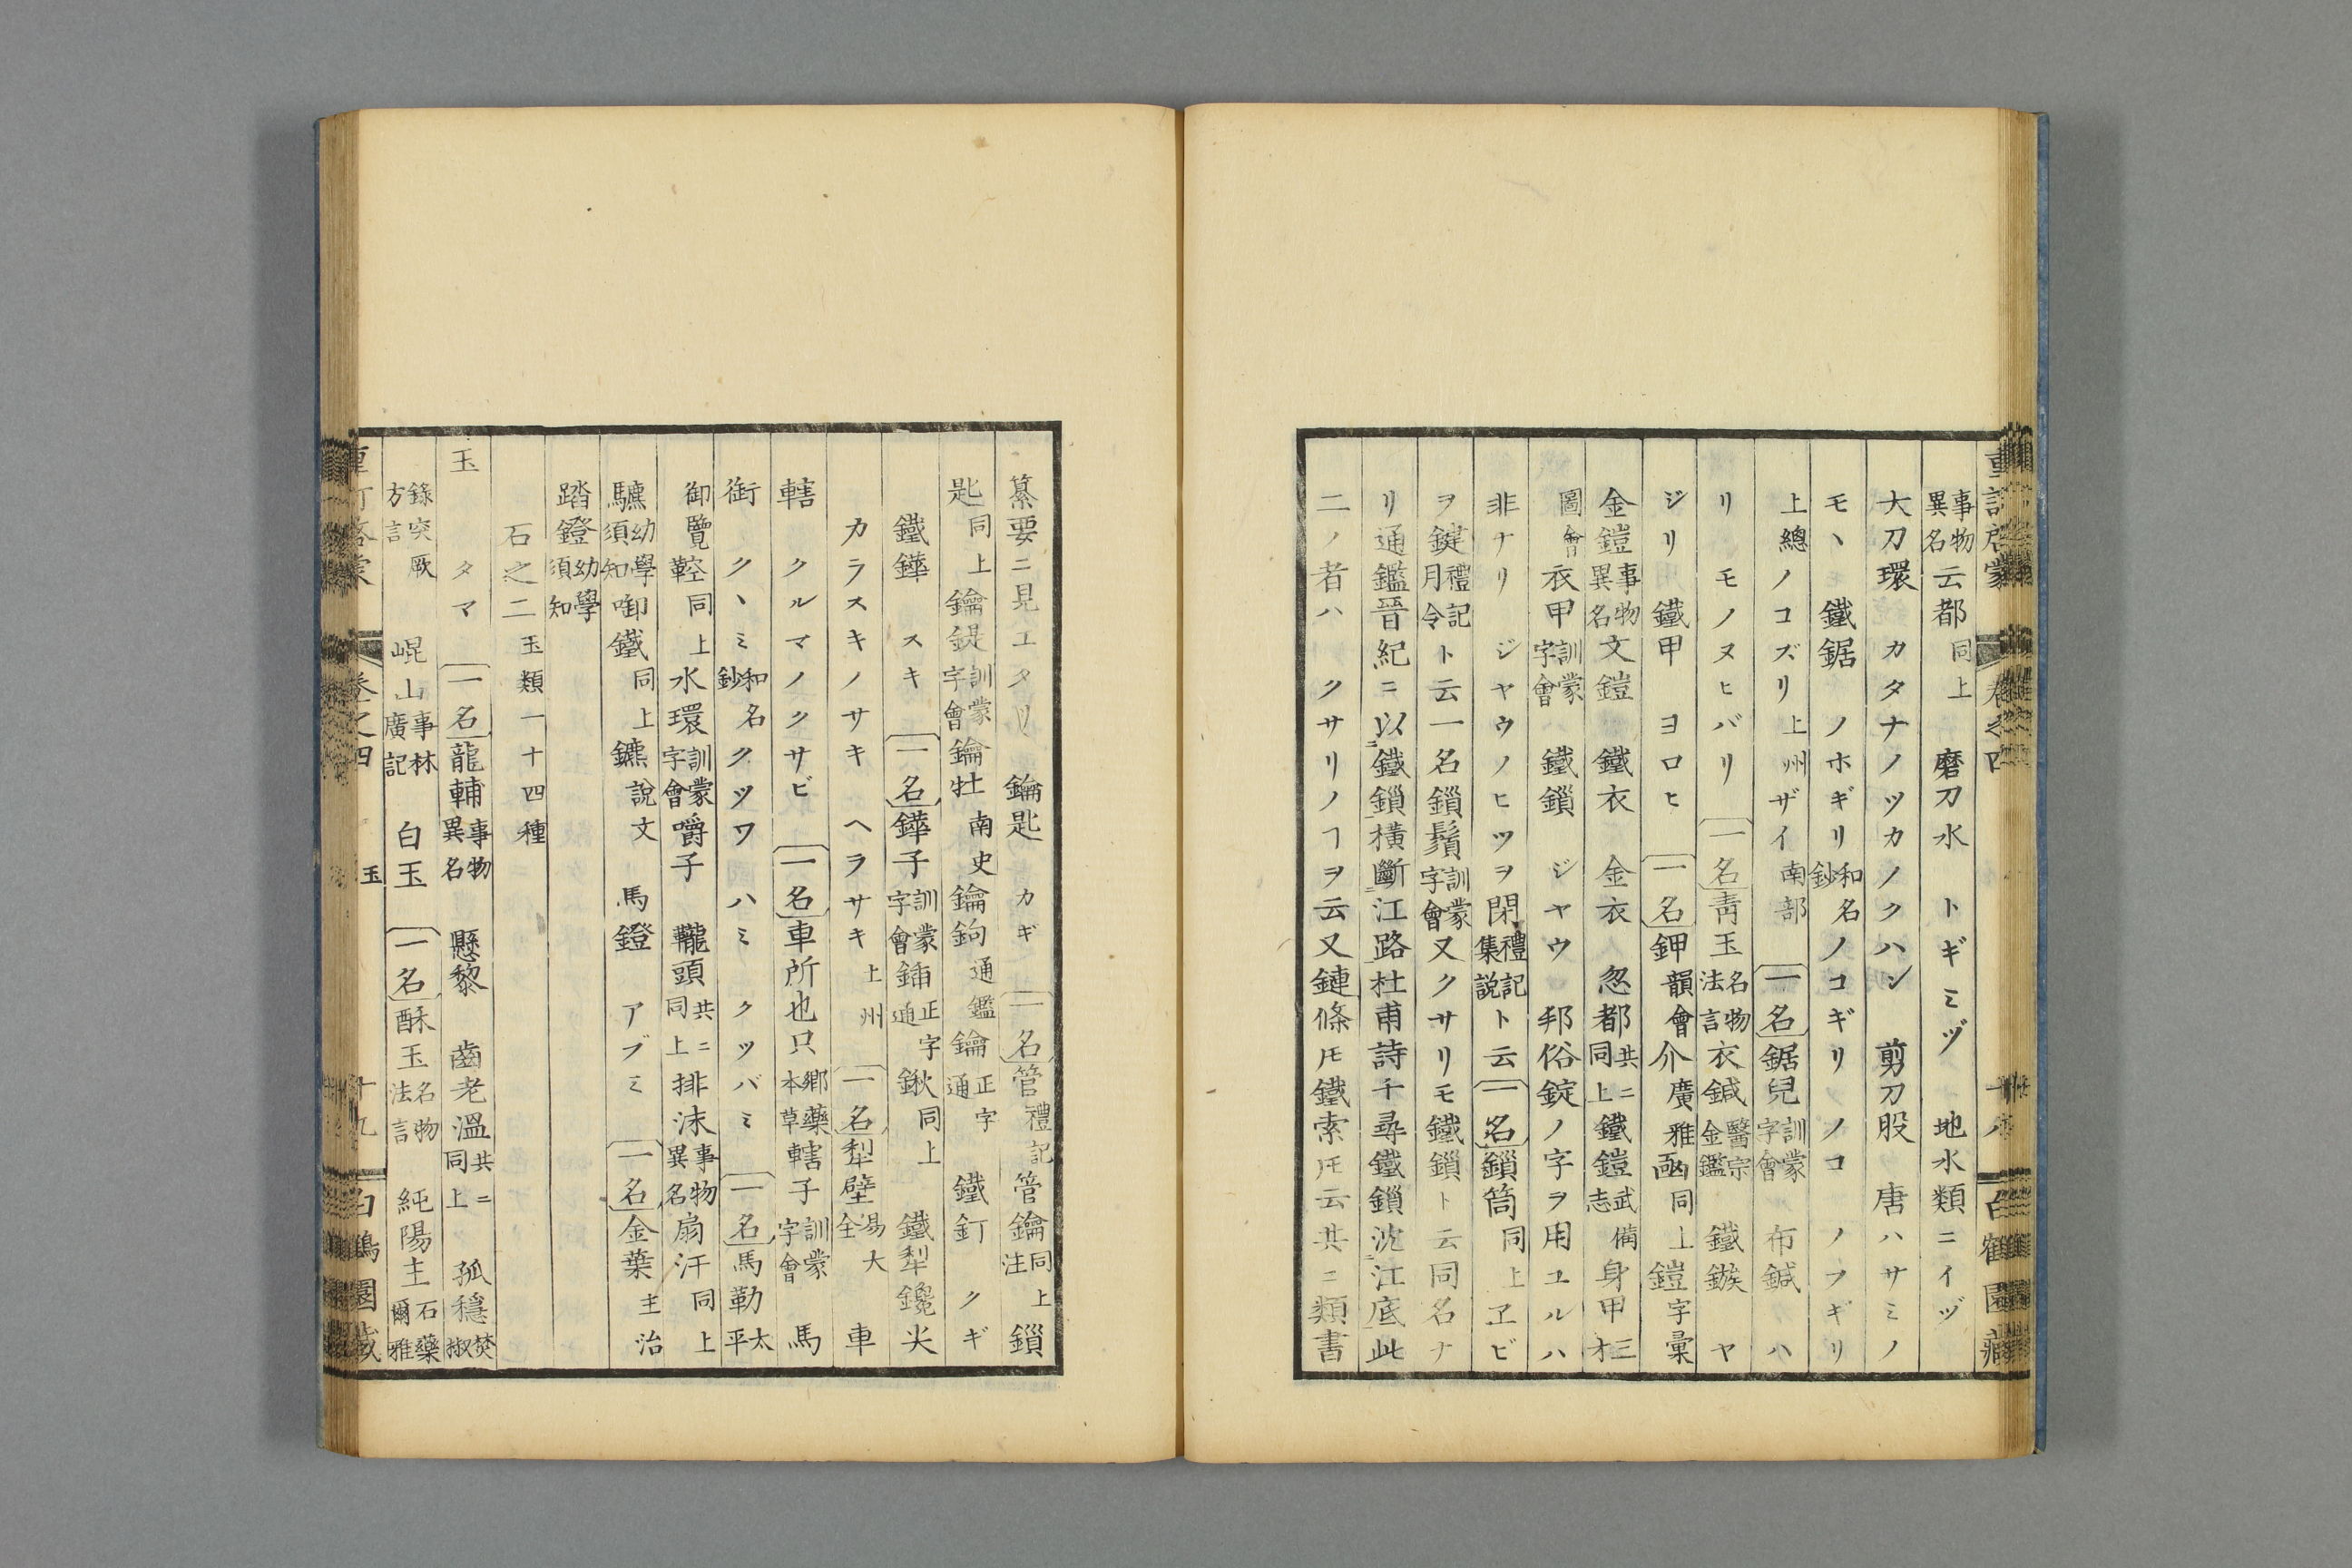 重訂啓蒙 卷之四 白鶴園藏
事物異名云都同上 磨刀水 トギミヅ 地水類ニイヅ
大刀環 カタナノツカノクハン 剪刀股 唐ハサミノ
モヽ 鐵鋸 ノホギリ和名鈔ノコギリ ノコ ノフギリ
上總ノコズリ上州ザイ南部 一名鋸兒訓蒙字會 布鍼 ハ
リ モノヌヒバリ 一名靑玉名物法言衣鍼醫宗金鑑 鐵鏃 ヤ
ジリ 鐵甲 ヨロヒ 一名鉀韻會介廣雅凾同上鎧字彙
金鎧事物異名文鎧 鐵衣 金衣 忽都共ニ同上鐵鎧武備志身甲三才
圖會衣甲訓蒙字會 鐵鎖 ジヤウ 邦俗錠ノ字ヲ用ユルハ
非ナリ ジヤウノヒツヲ閉禮記集説ト云 一名鎖筒同上ヱビ
ヲ鍵禮記月令ト云一名鎖鬚訓蒙字會又クサリモ鐵鎖ト云同名ナ
リ通鑑晉紀ニ以鐵鎖橫斷江路杜甫詩千尋鐵鎖沈江底此
二ノ者ハクサリノヿヲ云又鏈條𪜈鐵索𪜈云共ニ類書
纂要ニ見エタリ 鑰匙 カギ 一名管禮記管鑰同上注鎖
匙同上鑰鍉訓蒙字會鑰牡南史鑰鉤通鑑鑰正字通 鐵釘 クギ
鐵鏵 スキ 一名鏵子訓蒙字會鋪正字通鍬同上 鐵犁鑱尖
カラスキノサキ ヘラサキ上州 一名犁壁易大全 車
轄 クルマノクサビ 一名車所也只鄕藥本草轄子訓蒙字會 馬
銜 クヽミ和名鈔クツワ ハミ クツバミ 一名馬勒太平
御覽鞚同上水環訓蒙字會嚼子 龓頭共ニ同上排沫事物異名扇汗同上
驦幼學須知啣鐵同上鑣説文 馬鐙 アブミ 一名金葉主治
踏鐙幼學須知
石之二玉類一十四種
玉 タマ 一名龍輔事物異名 懸黎 齒老溫共ニ同上 孤穩焚椒
錄突厥方言 崐山事林廣記 白玉 一名酥玉名物法言 純陽主石藥爾雅
卷之四 玉 十九